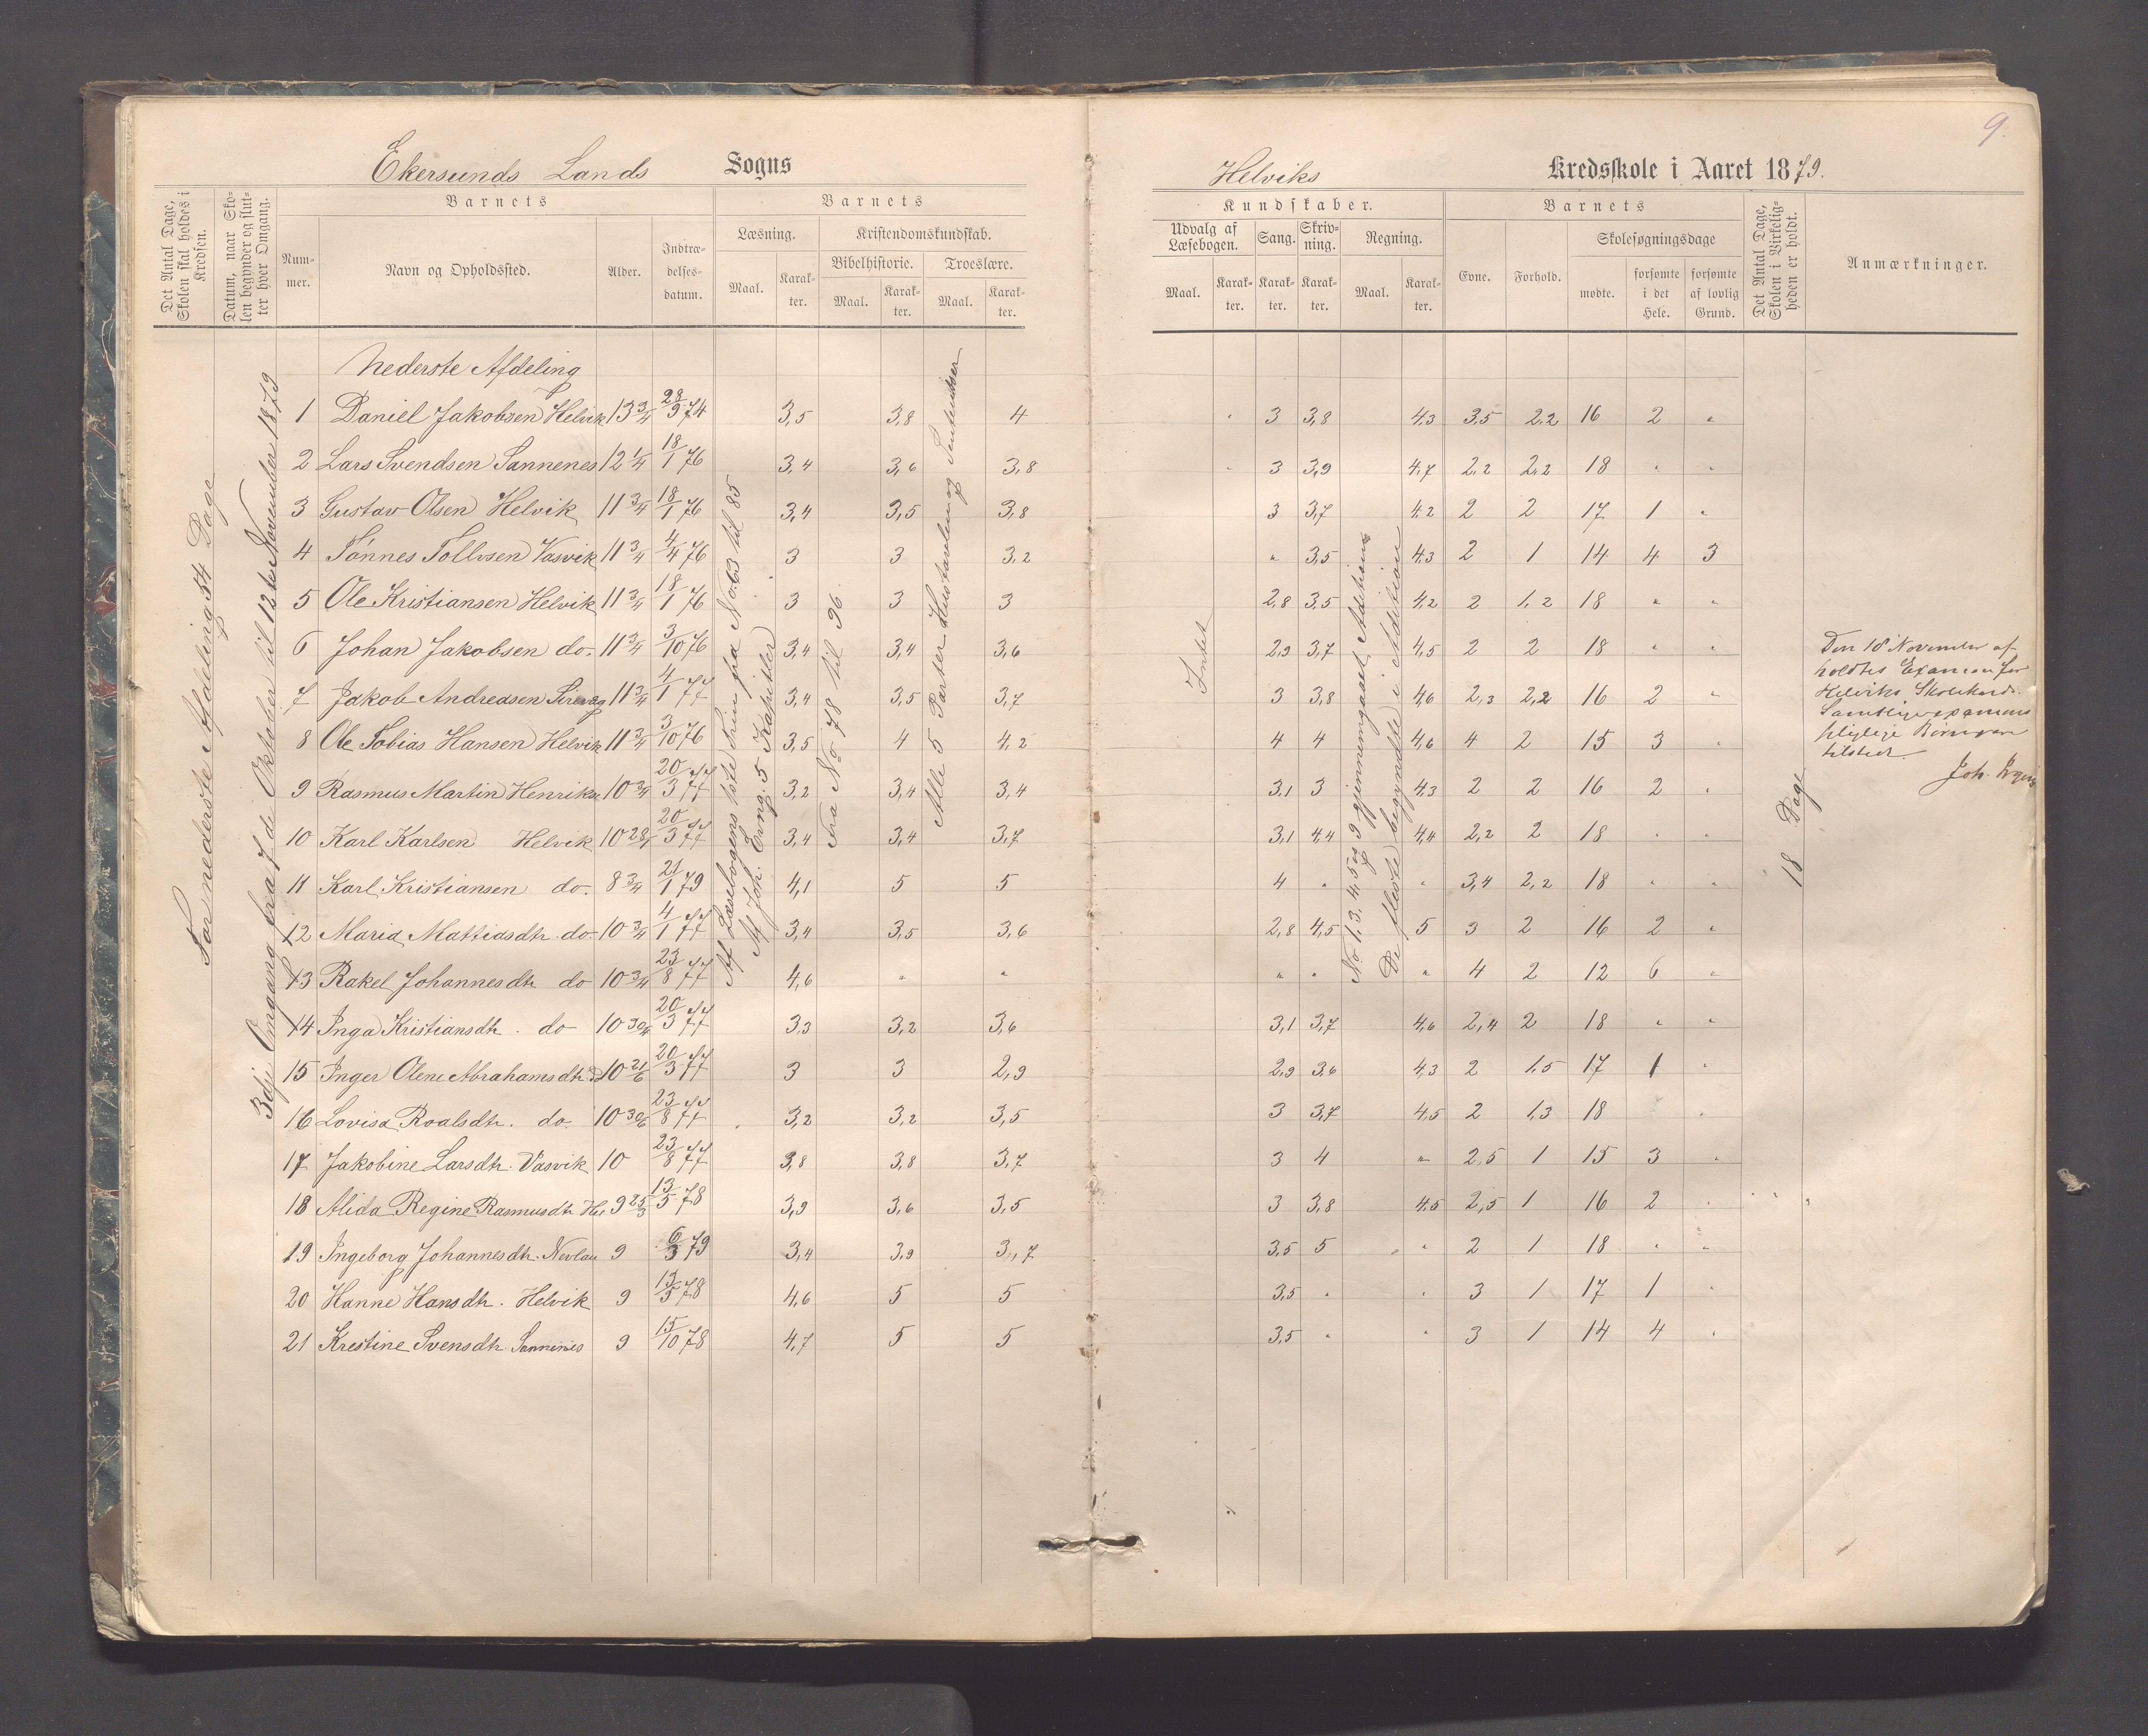 9.
Ekersunds Lands Sogns
Helviks Kredsskole i Aaret 1879.
Det Antal Dage, Skolen skal holdes i Kredsen.
Datum, naar Skolen begynder og slutter hver Omgang.
Barnets
Nummer.
Navn og Opholdssted.
Alder.
Indtrædelsesdatum.
Barnets
Læsning.
Maal.
Karakter.
Kristendomskundskab.
Bibelhistorie.
Maal.
Karakter.
Troeslære.
Maal.
Karakter.
Kundskaber.
Udvalg af Læsebogen.
Maal.
Karakter.
Sang.
Karakter.
Skrivning.
Karakter.
Regning.
Maal.
Karakter.
Barnets
Evne.
Forhold.
Skolesøgningsdage
mødte.
forsømte i det Hele.
forsømte af lovlig Grund.
Det Antal Dage, Skolen i Virkeligheden er holdt.
Anmærkninger.
For nederste Afdeling 54 Dage
3die Omgang fra 7de Oktober til 12te November 1879
Af Læsebogens 1ste Trin fra No 63 til 85
Af Joh. Evng. 5 Kapitler
Fra No 78 til 96
Alle 5 Parter Hustavlen og
Intet
No 1, 3, 4, 5 og 9 gjennemgaaet Adition
De fleste begyndte i Adition
18 Dage
Nederste Afdeling
1 Daniel Jakobsen Helvik 13 3/4 28/9 74 3,5 3,8 4 " 3 3,8 4,3 3,5 2,2 16 2 "
2 Lars Svendsen Sannenes 12 1/4 18/1 76 3,4 3,6 3,8 " 3 3,9 4,7 2,2 2,2 18 " "
3 Gustav Olsen Helvik 11 3/4 18/1 76 3,4 3,5 3,8 3 3,7 4,2 2 2 17 1 "
4 Tønnes Tollvsen Vasvik 11 3/4 4/4 76 3 3 3,2 " 3,5 4,3 2 1 14 4 3
5 Ole Kristiansen Helvik 11 3/4 18/1 76 3 3 3 2,8 3,5 4,2 2 1,2 18 " "
6 Johan Jakobsen do. 11 3/4 3/10 76 3,4 3,4 3,6 2,9 3,7 4,5 2 2 18 " "
7 Jakob Andreasen Sirevåg 11 3/4 4/1 77 3,4 3,5 3,7 3 3,8 4,6 2,3 2,2 16 2 "
8 Ole Tobias Hansen Helvik 11 3/4 3/10 76 3,5 4 4,2 4 4 4,6 4 2 15 3 "
9 Rasmus Martin Henriks 10 3/4 20/3 77 3,2 3,4 3,4 3,1 3 4,3 2 2 16 2 "
10 Karl Karlsen Helvik 10 28/7 20/3 77 3,4 3,4 3,7 3,1 4,4 4,4 2,2 2 18 " "
11 Karl Kristiansen do. 8 3/4 21/1 79 4,1 5 5 4 " " 3,4 2,2 18 " "
12 Maria Mattiasdtr. do. 10 3/4 4/1 77 3,4 3,5 3,6 2,8 4,5 5 3 2 16 2 "
13 Rakel Johannesdtr do 10 3/4 23/8 77 4,6 " " " " " 4 2 12 6 "
14 Inga Kristiansdtr. do 10 30/4 20/3 77 3,3 3,2 3,6 3,1 3,7 4,6 2,4 2 18 " "
15 Inger Olene Abrahamsdtr 10 21/6 20/3 77 3 3 2,9 2,9 3,6 4,3 2 1,5 17 1 "
16 Lovisa Roalsdtr. do. 10 30/6 23/8 77 3,2 3,2 3,5 3 3,7 4,5 2 1,3 18 "
17 Jakobine Larsdtr. Vasvik 10 23/8 77 3,8 3,8 3,7 3 4 " 2,5 1 15 3 "
18 Alida Regine Rasmusdtr He. 9 25/3 13/5 78 3,9 3,6 3,5 3 3,8 4,5 2,5 1 16 2 "
19 Ingeborg Johannesdtr. Nevlau 9 6/3 79 3,4 3,9 3,7 3,5 5 " 2 1 18 " "
20 Hanne Hansdtr. Helvik 9 13/5 78 4,6 5 5 3,5 " " 3 1 17 1 "
21 Krestine Svensdtr. Sannenes 9 15/10 78 4,7 5 5 3,5 " " 3 1 14 4 "
Den 18 November af
holdtes Examen for
Helviks Skolekreds.
Samtlige examens
pligtige Børn var
tilstede.
Joh.